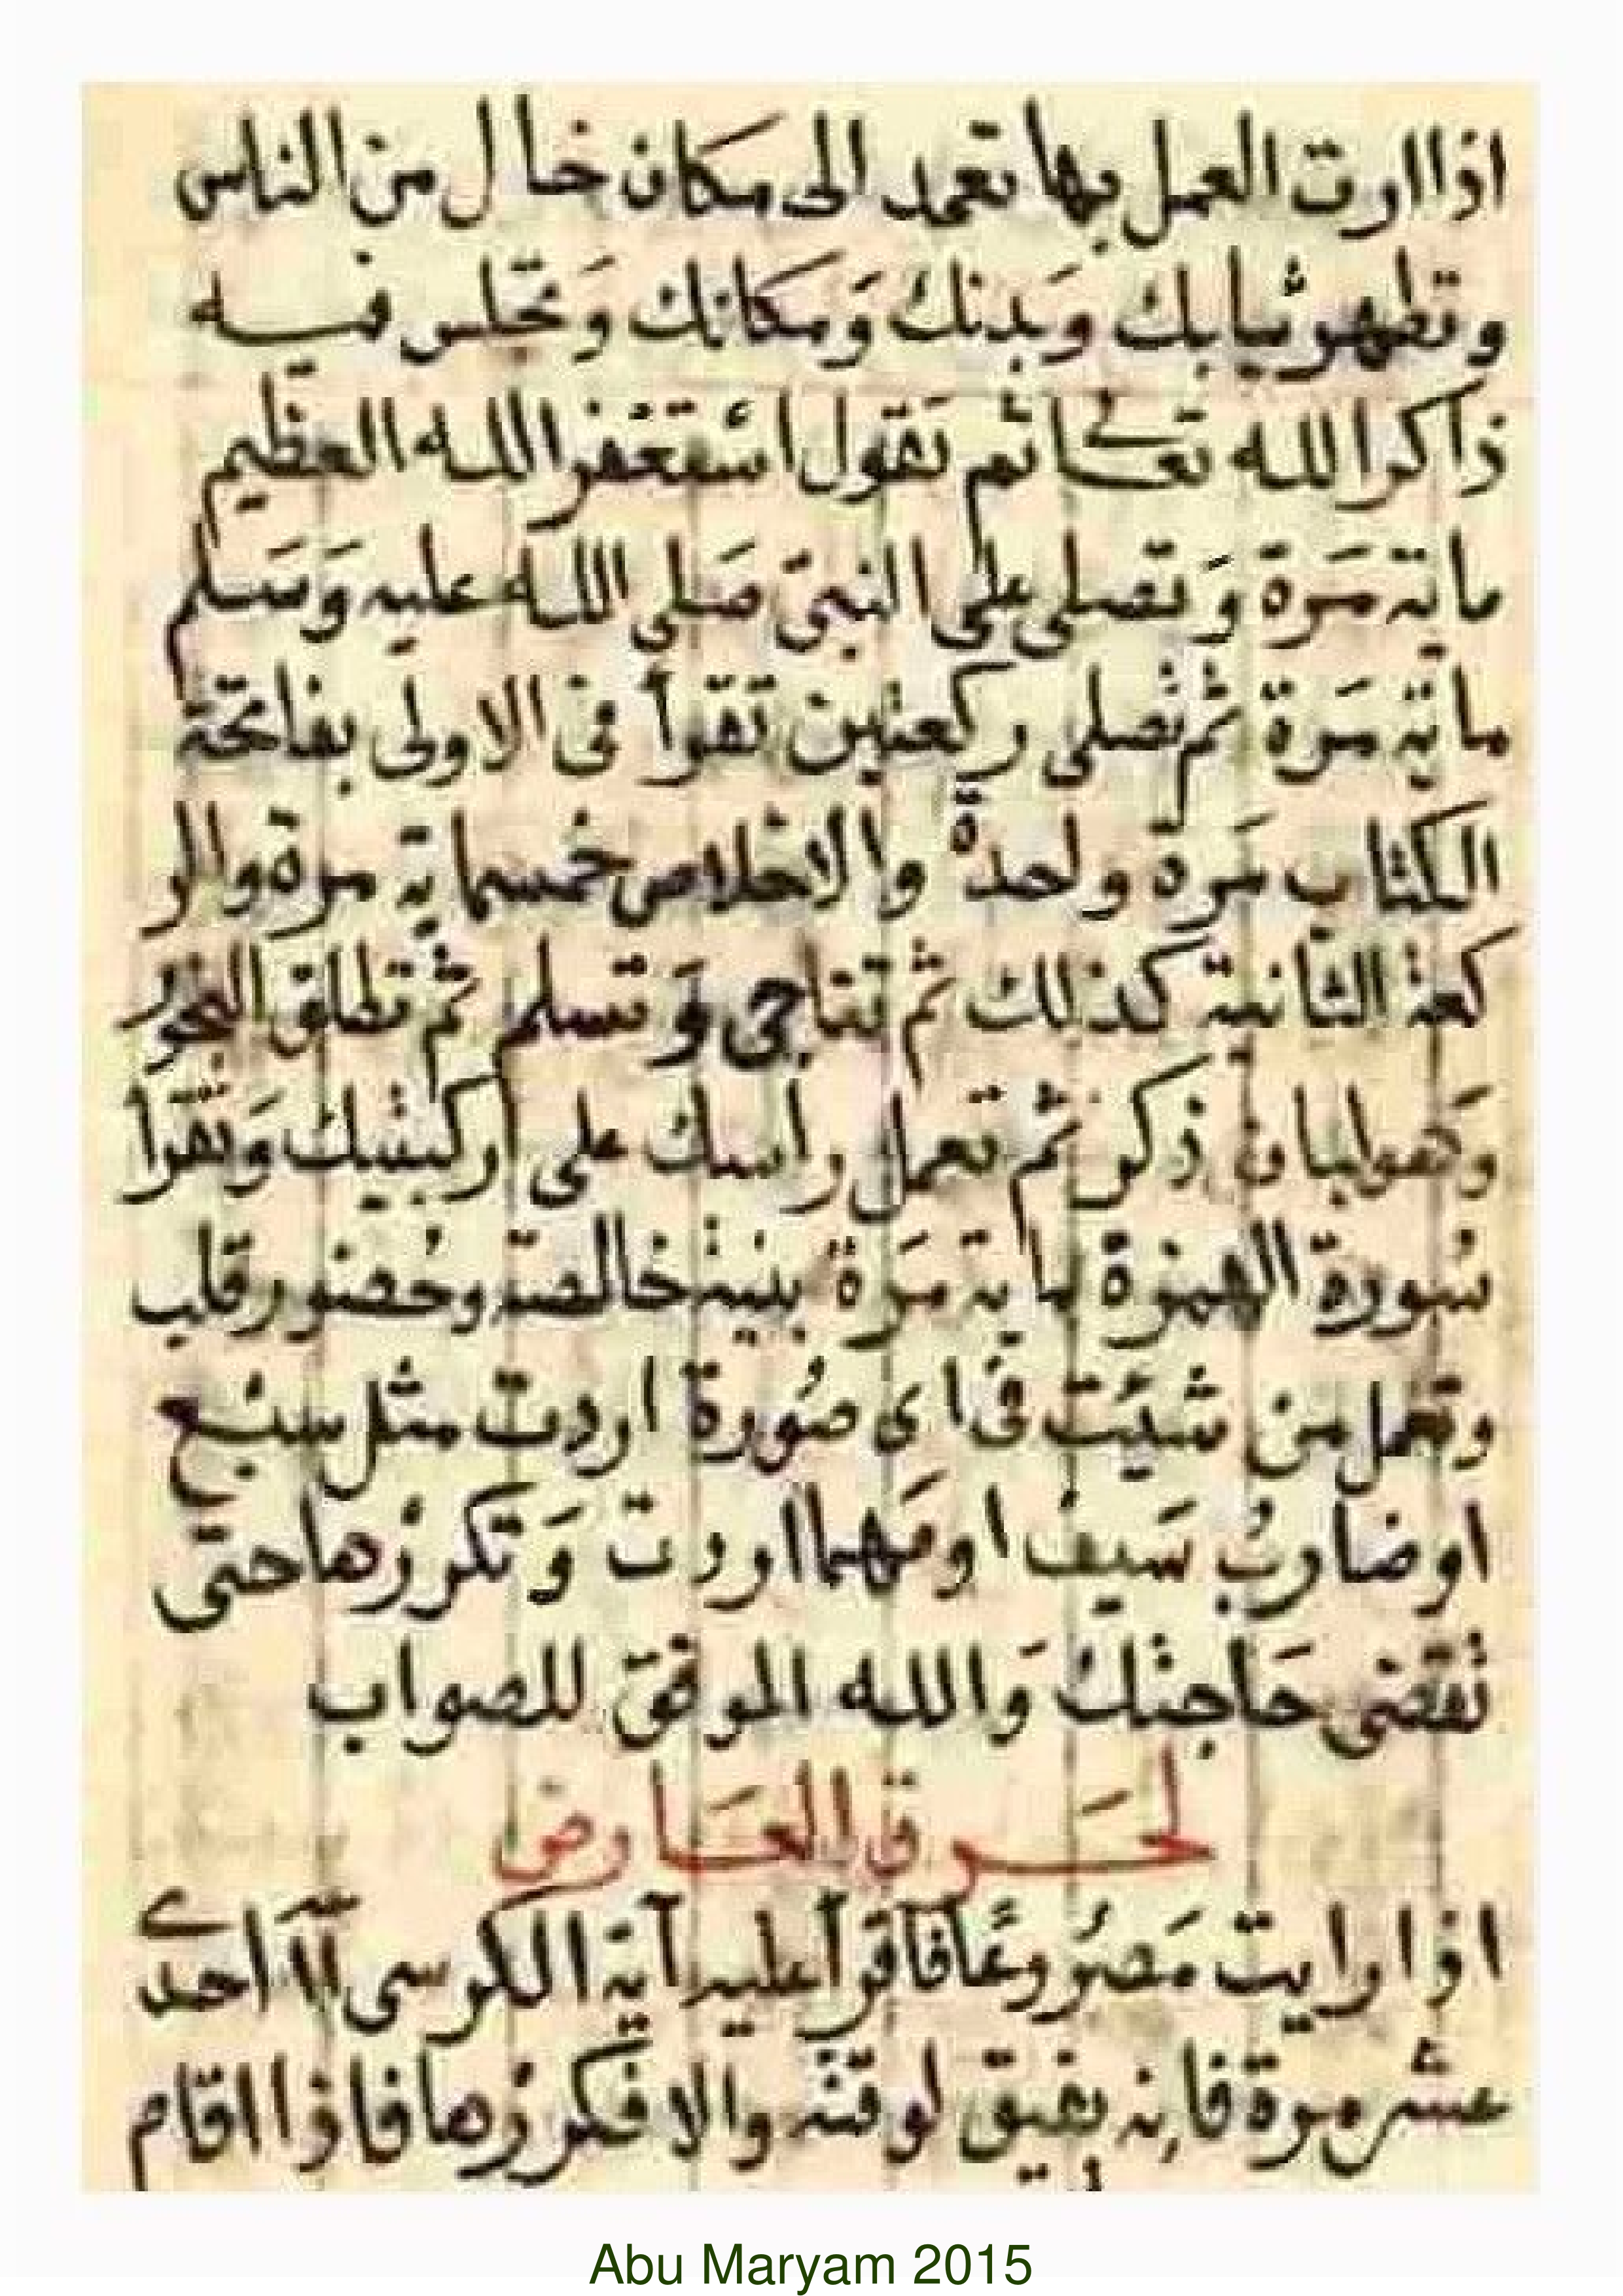 اذا اردت العمل بها تعمد الى مكان خال من الناس
وتطهر ثيابك وَبَدنك وَمكانك وَتجلس فيه
ذاكرا الله تعالى ثم تقول استغفر الله العظيم
ماية مَرة وَتصلى على النبىّ صَلى الله عليه وَسَلم
ماية مَرة ثم تصلى ركعتين تقرأ فى الاولى بفاتحة
الكتاب مَرة واحدة والاخلاص خمسماية مرة والر
كعة الثانية كذلك ثم تناجى وَتسلم ثم تطلق البخور
وَهو لبان ذكر ثم تعمل راسك على ركبتيك وَتقرأ
سُورة الهمزة ماية مَرة بنية خالصة وحُضور قلب
وتعمل من شئت فى اى صُورة اردت مثل سبُع
او ضارب سَيف او مَهما اردت وَتكررُها حتى
تقضى حَاجتك وَالله الموفق للصواب
لحَرق العَارض
اذا رايت مَصرُوعًا فاقرأ عليه آية الكرسى احدى
عشر مرة فانه يفيق لوقته والا فكررُها فاذا اقام
Abu Maryam 2015